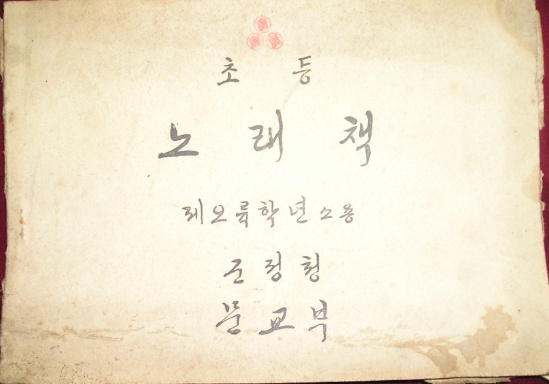 초 등
노 래 책
제오륙학년소용
군정청
문교부